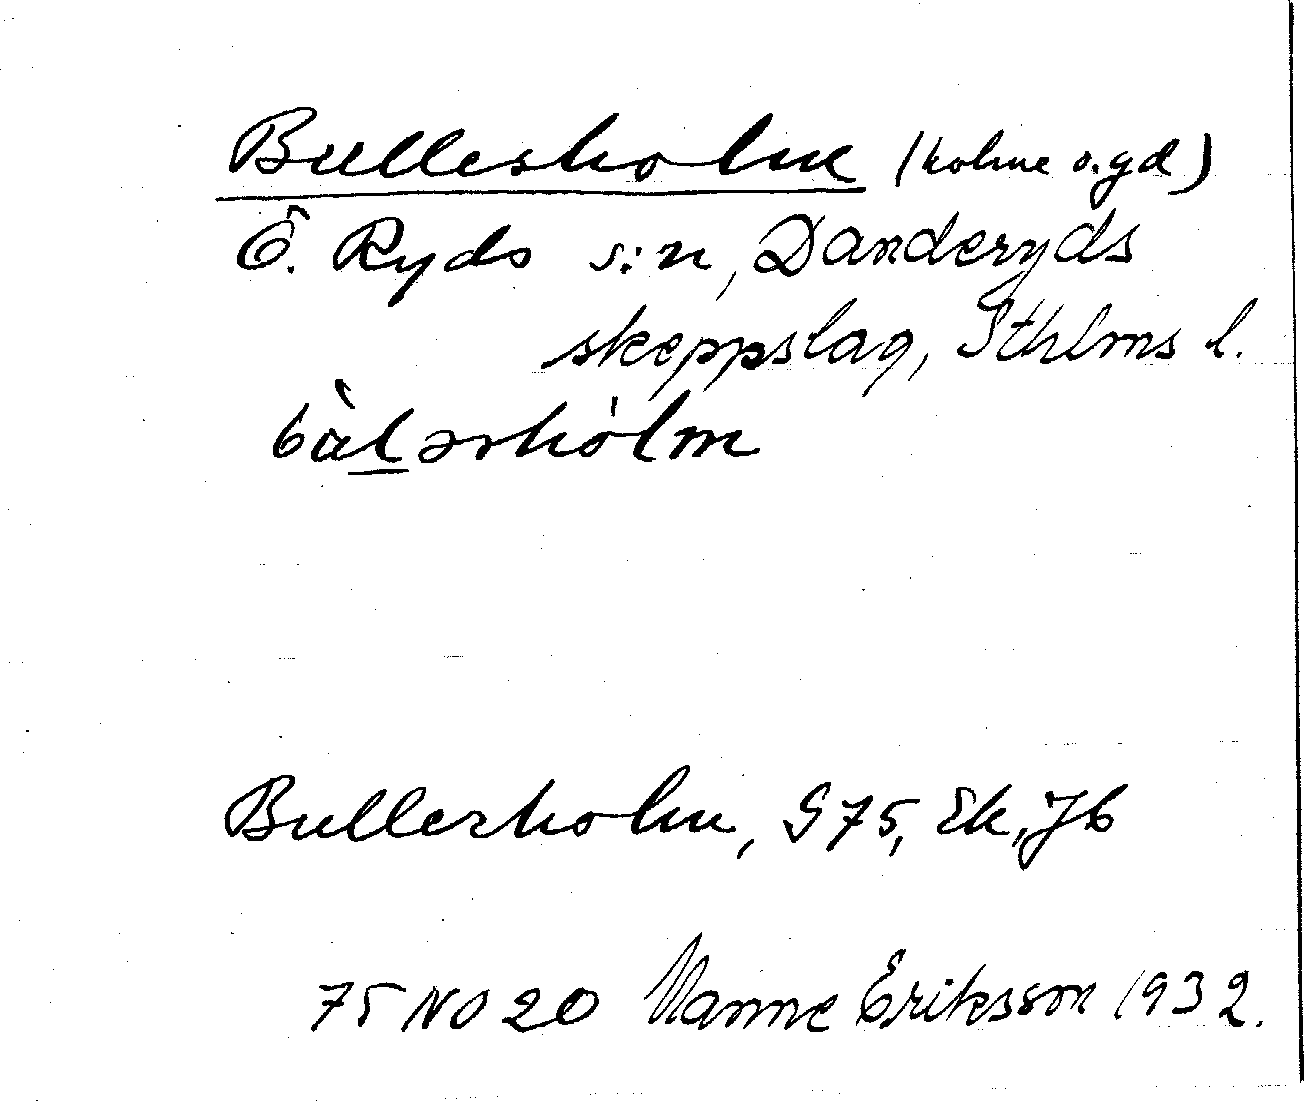 Bullesholm (holme o. gd)
Ö. Ryds s:n, Danderyds
skeppslag, Sthlms l.
bàl̲ərhól̀m
Bullerholm, S75, Ek, Jb
75 NO 20 Manne Eriksson 1932.